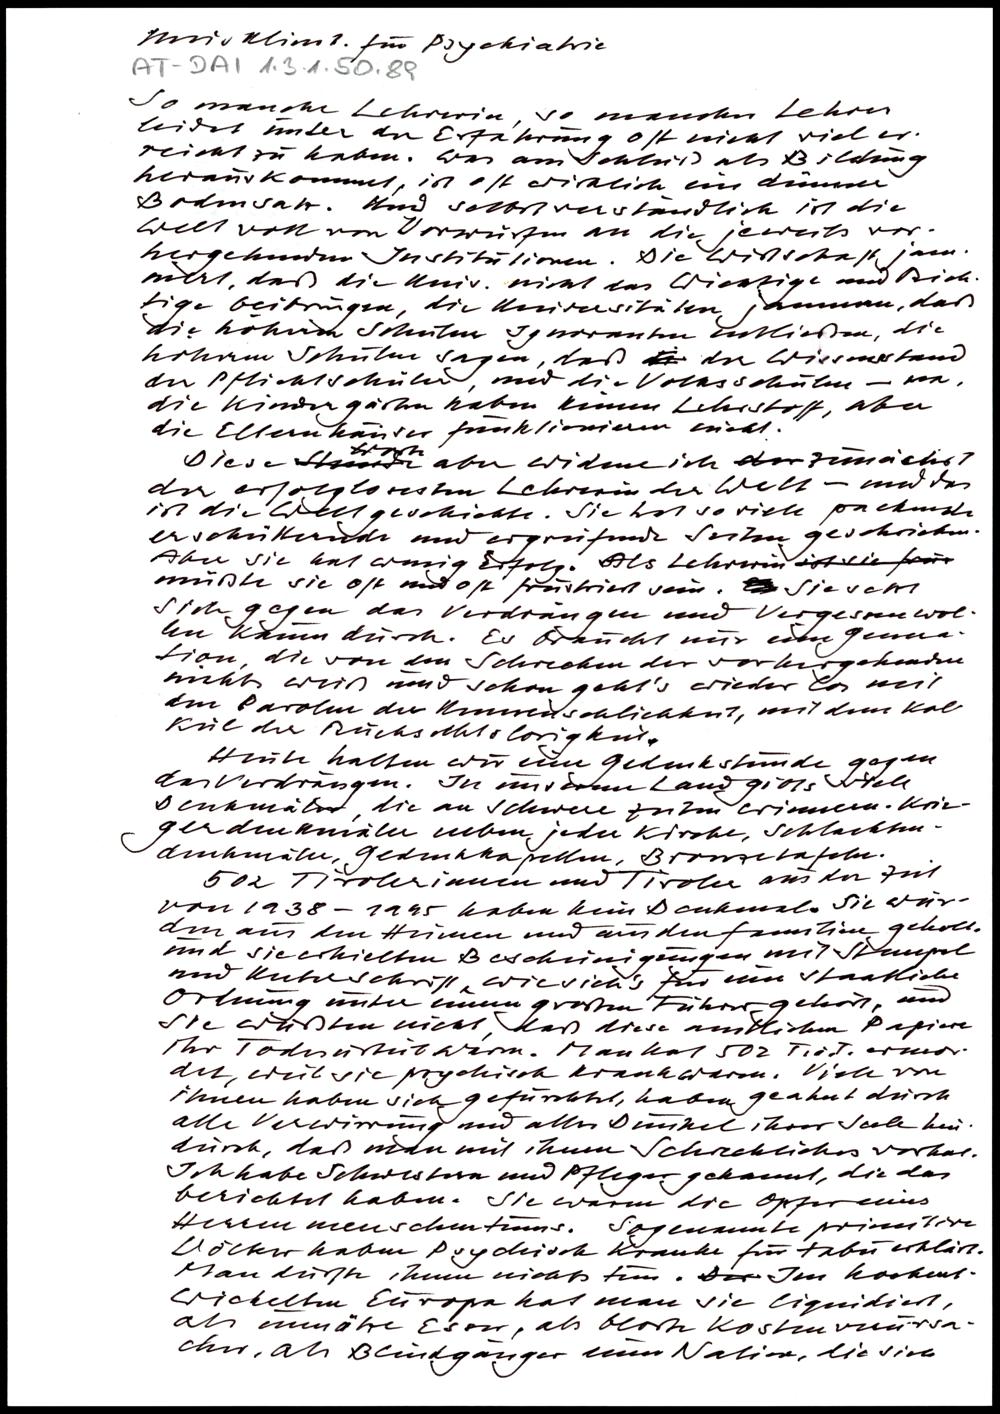 Univ. Klinik. für Psychiatrie
AT-DAI 1.3.1.50.89
So manche Lehrerin, so mancher Lehrer
leidet unter der Erfahrung oft nicht viel er-
reicht zu haben. Was am Schluß als Bildung
herauskommt, ist oft wirklich ein dünner
Bodensatz. Und selbstverständlich ist die
Welt voll von Vorwürfen an die jeweils vor-
hergehenden Institutionen. Die Wirtschaft jam-
mert, daß die Univ. nicht das Wichtige und Rich-
tige beibringen, die Universitäten jammern, daß
die höheren Schulen Ignoranten entließen, die
höheren Schulen sagen, daß der Wissensstand
der Pflichtschüler, und die Volksschulen – na,
die Kindergärten haben keinen Lehrstoff, aber
die Elternhäuser funktionieren nicht.
Diese Worte aber widme ich zunächst
der erfolglosesten Lehrerin der Welt – und das
ist die Weltgeschichte. Sie hat so viele packende
erschütternde und ergreifende Seiten geschrieben.
Aber sie hat wenig Erfolg. Als Lehrerin ist sie frus
müßte sie oft und oft frustriert sein. Sie setzt
sich gegen das Verdrängen und Vergessenwol-
len kaum durch. Es braucht nur eine Genera-
tion, die von den Schrecken der vorhergehenden
nichts weiß und schon geht's wieder los mit
den Parolen der Unmenschlichkeit, mit dem Kal
kül der Rücksichtslosigkeit.
Heute halten wir eine Gedenkstunde gegen
das Verdrängen. In unserem Land gibts viele
Denkmäler, die an schwere Zeiten erinnern. Krie-
gerdenkmäler neben jeder Kirche, Schlachten-
denkmäler, Gedenkkapellen, Bronzetafeln.
502 Tirolerinnen und Tiroler aus der Zeit
von 1938 – 1945 haben kein Denkmal. Sie wur-
den aus den Heimen und aus den Familien geholt.
und sie erhielten Bescheinigungen mit Stempel
und Unterschrift, wie sich's für eine staatliche
Ordnung unter einem großen Führer gehört, und
sie wußten nicht, daß diese amtlichen Papiere
ihr Todesurteil waren. Man hat 502 T.u.T. ermor-
det, weil sie psychisch krank waren. Viele von
ihnen haben sich gefürchtet, haben geahnt durch
alle Verwirrung und alles Dunkel ihrer Seele hin-
durch, daß man mit ihnen Schreckliches vorhat.
Ich habe Schwestern und Pfleger gekannt, die das
berichtet haben. Sie waren die Opfer eines
Herrenmenschentums. Sogenannte primitive
Völker haben Psychisch Kranke für tabu erklärt.
Man durfte ihnen nichts tun. Der Im hochent-
wickelten Europa hat man sie liquidiert,
als unnütze Esser, als bloße Kostenverursa-
cher, als Blindgänger einer Nation, die sich